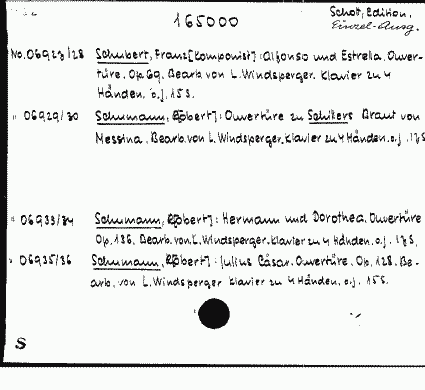 165000
Schott, Edition,
Einzel-Ausg.
No. 06923/28 Schubert, Franz [Komponist]: Alfonso und Estrella. Ouver-
türe. Op. 69. Bearb. von L. Windsperger. Klavier zu 4
Händen. o.J. 15 S.
" 06929/30 Schumann, R[obert]: Ouvertüre zu Schillers Braut von
Messina. Bearb. von L. Windsperger. Klavier zu 4 Händen. o.J.
" 06933/34 Schumann, R[obert]: Hermann und Dorothea. Ouvertüre
Op. 136. Bearb. von L. Windsperger. Klavier zu 4 Händen. o.J.
" 06935/36 Schumann, R[obert]: Julius Cäsar. Ouvertüre. Op. 128. Be-
arb. von L. Windsperger Klavier zu 4 Händen. o.J. 15 S.
S